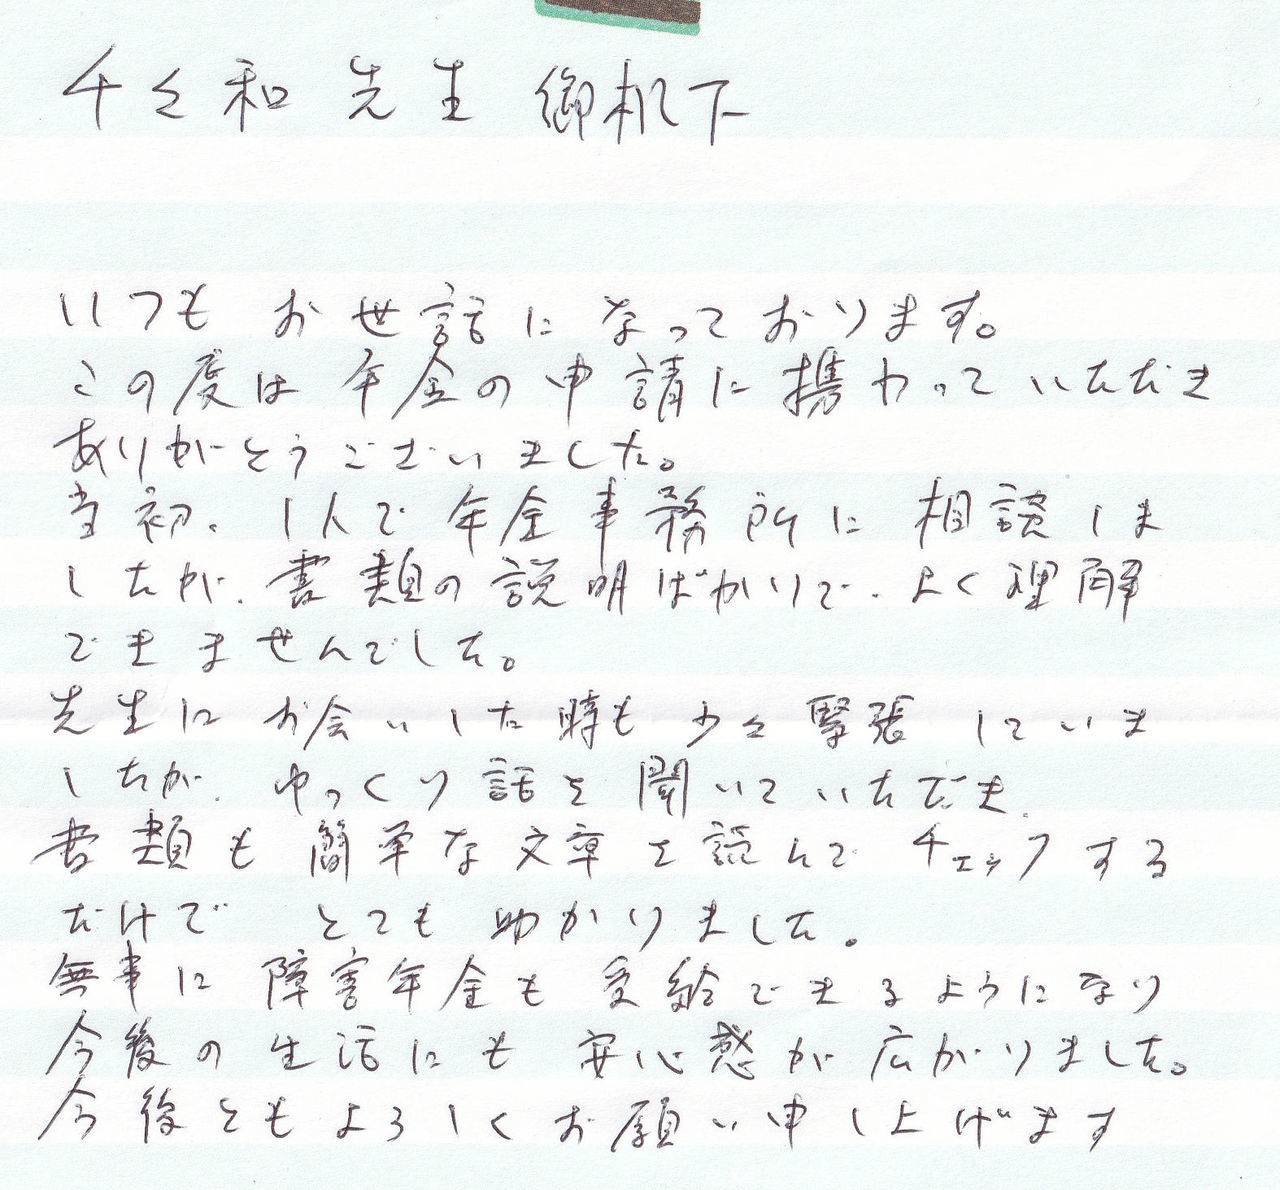 千々和 先生 御机下
いつも お世話になっております。
この度は 年金の申請に携わっていただき
ありがとうございました。
当初、1人で年金事務所に相談しま
したが、書類の説明ばかりで、よく理解
できませんでした。
先生に お会いした時も 少々緊張していま
したが、ゆっくり話を聞いていただき、
書類も簡単な文章を読んで チェックする
だけで とても助かりました。
無事に 障害年金も 受給できるようになり
今後の生活にも 安心感が広がりました。
今後ともよろしくお願い申し上げます